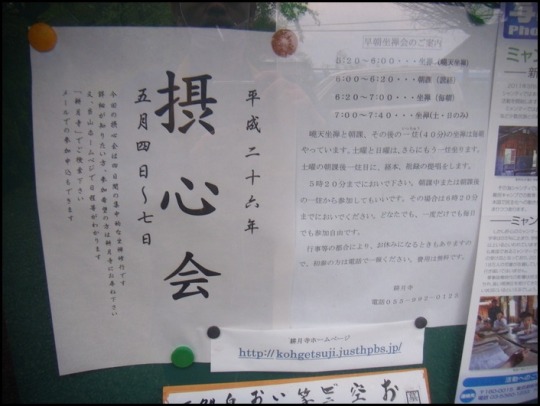 平成二十六年
摂心会
五月四日～七日
今回の摂心会は四日間の集中的な坐禅修行です
詳細が知りたい方、参加希望の方は耕月寺にお尋ね下さい
又、当山ホームページで日程等がわかります
「耕月寺」でご検索下さい
メールでの参加申込もできます
早朝坐禅会のご案内
5:20～6:00・・・坐禅（暁天坐禅）
6:00～6:20・・・朝課（読経）
6:20～7:00・・・坐禅（毎朝）
7:00～7:40・・・坐禅(土・日のみ)
暁天坐禅と朝課、その後の一炷(40分)の坐禅は毎朝
やっています。土曜と日曜は、さらにもう一炷坐ります。
土曜の朝課後一炷目に、提唱をします。
5時20分までにおいで下さい。朝課中または朝課後
の一炷から参加してもいいです。その場合は6時20分ま
でにおいでください。どなたでも、一度だけでも毎日
でも参加自由です。
行事等の都合により、お休みになるときもありますの
で、初参の方は電話で一報ください。費用は無料です。
耕月寺
耕月寺ホームページ
http://kohgetsuji.justhpbs.jp/